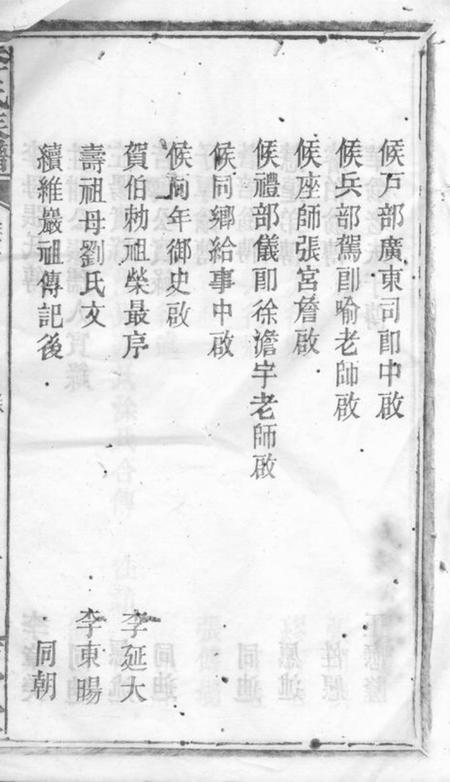 候戶部廣東司郎中啟
候兵部駕郎喻老師啟
候座師張宮詹啟
候禮部儀郎徐澹宇老師啟
候同鄉給事中啟
候同年御史啟
賀伯勅祖榮最序 李延大
壽祖母劉氏文 李東暘
續維嚴祖傳記後 同朝
李氏族譜